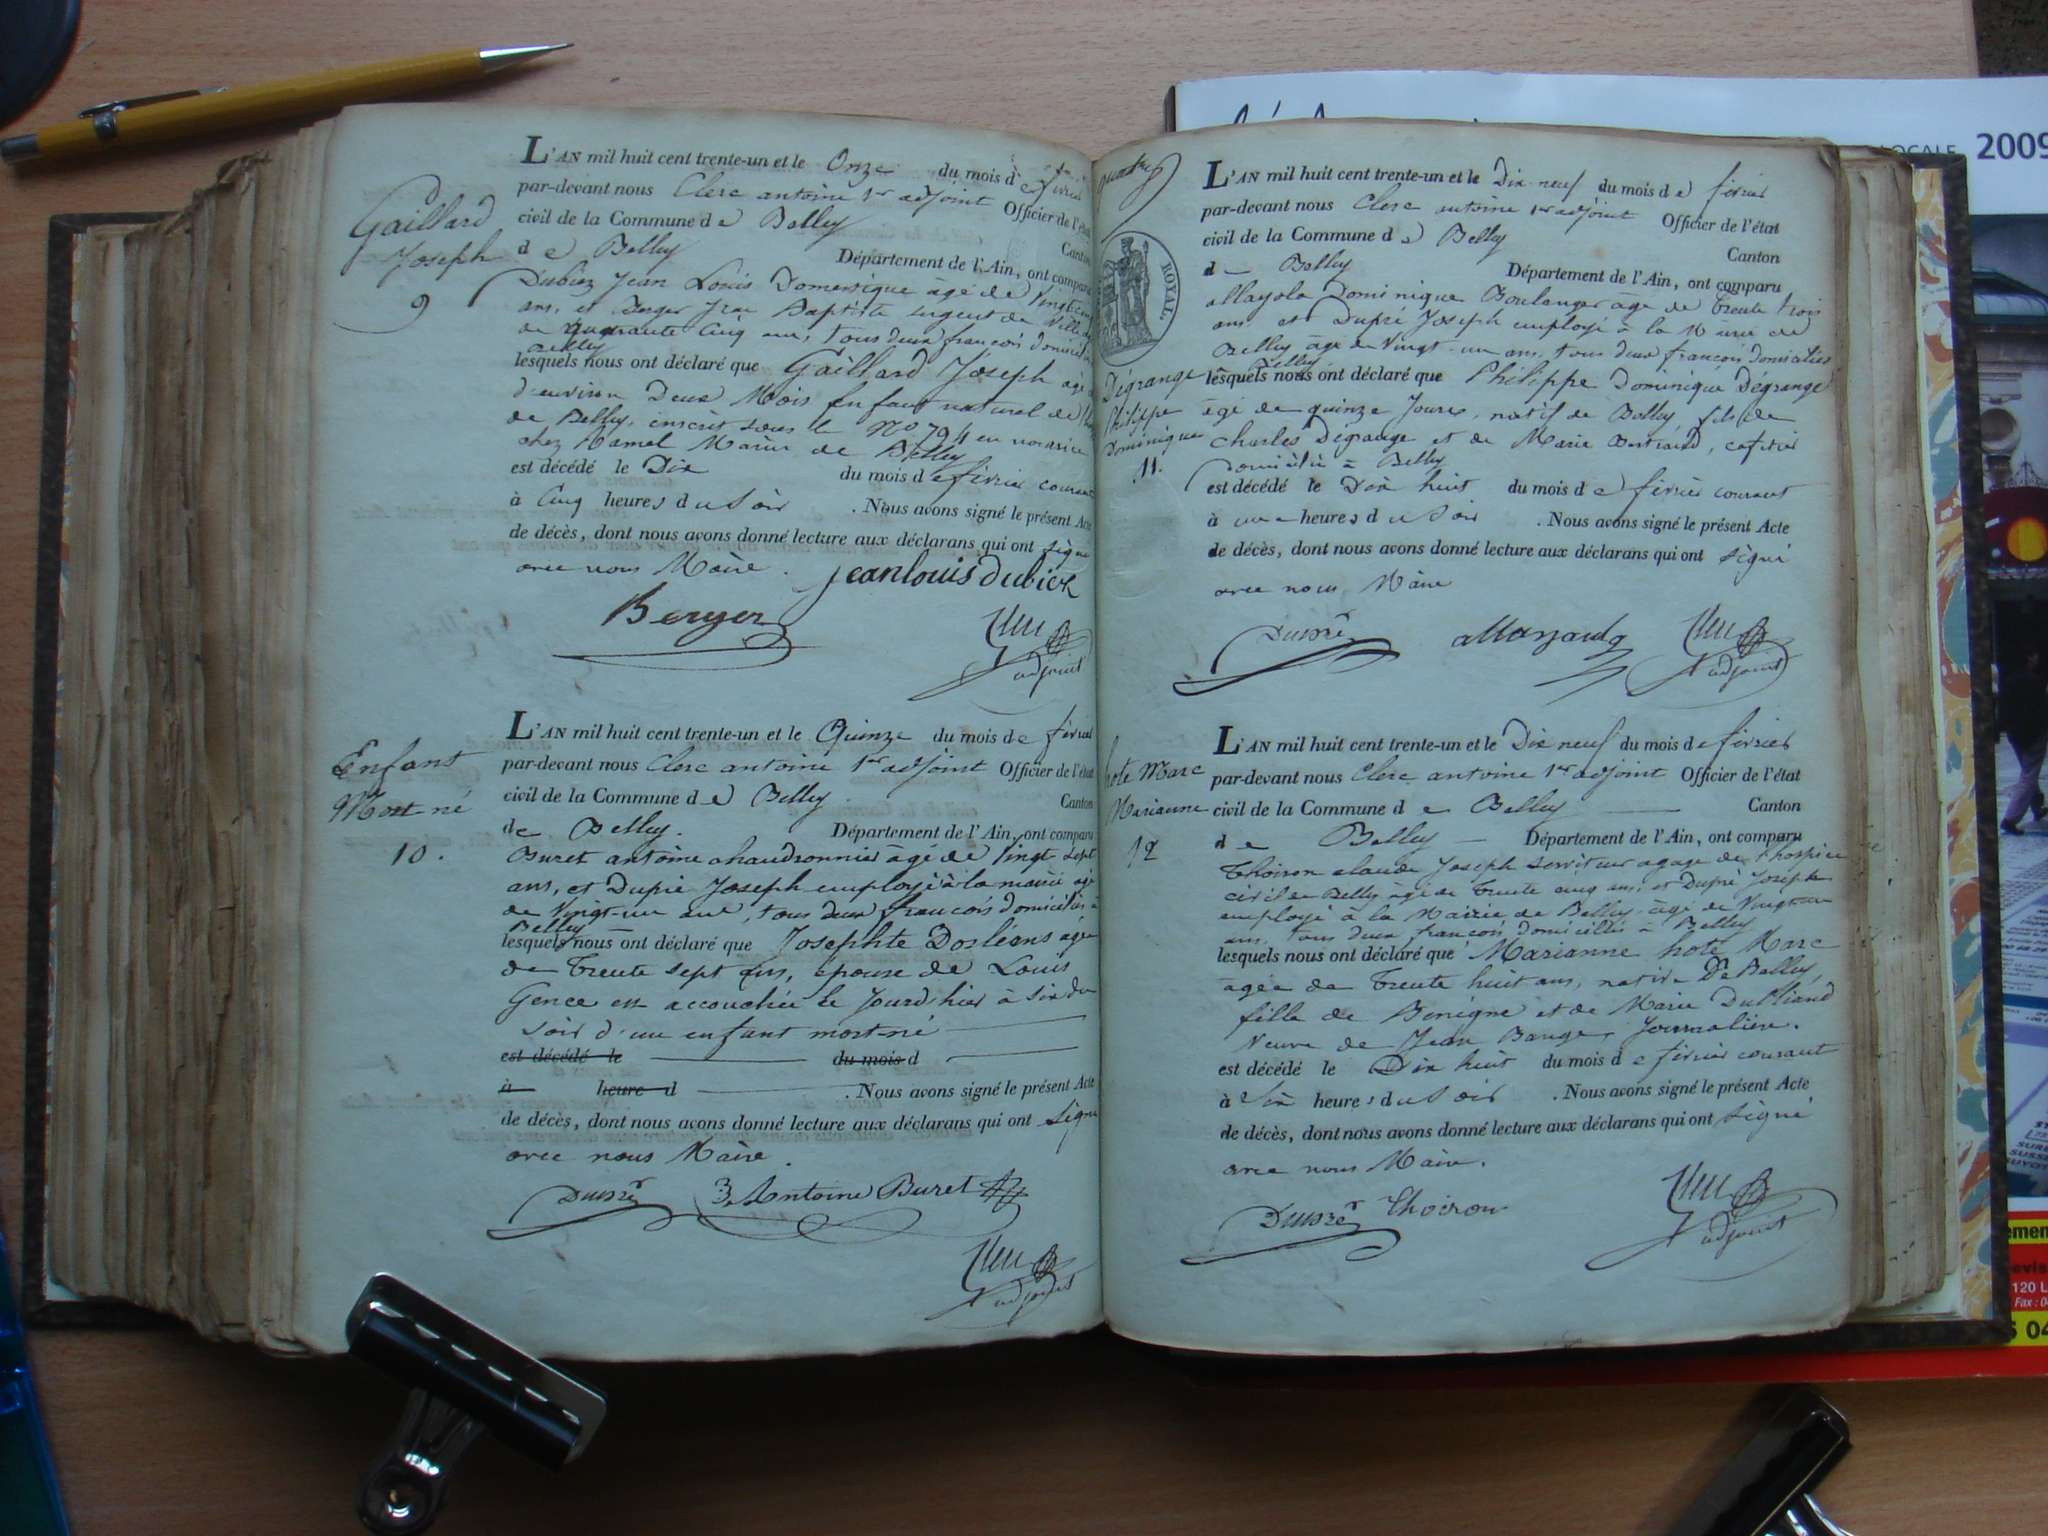 Gaillard
Joseph
9
L'AN mil huit cent trente-un et le Onze du mois de février
par-devant nous Clerc antoine 1er adjoint Officier de l'état
civil de la Commune de Belley
Canton
de Belley
Département de l'Ain, ont comparu
Dubiez Jean Louis Domestique âgé de Vingt cinq
ans, et Berger Jean Baptiste sergent de Ville âgé
de quarante Cinq ans, tous deux françois domiciliés
Belley
lesquels nous ont déclaré que Gaillard Joseph âgé
d'environ Deux Mois enfant naturel de
de Belley, inscrit sous le No 794 en nourice
chez Hamel Marin de Belley
est décédé le Dix du mois de février courant
à Cinq heures du Soir . Nous avons signé le présent Acte
de décès, dont nous avons donné lecture aux déclarans qui ont signé
avec nous Maire.
jean louis dubiez
Berger
Clerc
adjoint
Enfant
Mort-né
10.
L'AN mil huit cent trente-un et le Quinze du mois de février
par-devant nous Clerc antoine 1er adjoint Officier de l'état
civil de la Commune de Belley. Canton
de Belley. Département de l'Ain, ont comparu
Buret antoine chaudronnier âgé de Vingt-Sept
ans, et Dupré Joseph employé à la mairie âgé
de Vingt-un ans, tous deux françois domiciliés à
Belley
lesquels nous ont déclaré que Josephte Dorléans agée
de Trente sept ans, épouse de Louis
Gence est accouchée le Jourd'hier à Six du
soir d'un enfant mort-né
est décédé le du mois d
à heure d . Nous avons signé le présent Acte
de décès, dont nous avons donné lecture aux déclarans qui ont signé
avec nous Maire.
Dupré Antoine Buret
Clerc
adjoint
ROYAL.
Dégrange
Philippe
Dominique
11.
L'AN mil huit cent trente-un et le Dix neuf du mois de février
par-devant nous Clerc antoine 1er adjoint Officier de l'état
civil de la Commune de Belley
Canton
de Belley
Département de l'Ain, ont comparu
Dominique Boulanger âgé de Trente trois
ans et Dupré Joseph employé à la Mairie de
Belley âgé de Vingt-un ans, tous deux françois domiciliés
Belley
lesquels nous ont déclaré que Philippe Dominique Dégrange
âgé de quinze Jours, natif de Belley fils de
Charles Dégrange et de Marie Bertrand, cafetier
Domicilié à Belley
est décédé le Dix huit du mois de février courant
à une heures du Soir . Nous avons signé le présent Acte
de décès, dont nous avons donné lecture aux déclarans qui ont signé
avec nous Maire
Dupré
Clerc
adjoint
hote Marc
Marianne
12
L'AN mil huit cent trente-un et le Dix neuf du mois de février
par-devant nous Clerc antoine 1er adjoint Officier de l'état
civil de la Commune de Belley Canton
de Belley Département de l'Ain, ont comparu
Thoiron claude Joseph serviteur agage de l'hospice
civil de Belley âgé de Trente cinq ans, et Dupré Joseph
employé à la Mairie de Belley âgé de Vingt-un
ans, tous deux françois domiciliés à Belley
lesquels nous ont déclaré que Marianne hote Marc
agée de Trente huit ans, native De Belley,
fille de Bénigne et de Marie Dulliand
Veuve de Jean Bauge, Journalière.
est décédé le Dix huit du mois de février courant
à Six heures du Soir . Nous avons signé le présent Acte
de décès, dont nous avons donné lecture aux déclarans qui ont signé
avec nous Maire.
Dupré Thoiron
Clerc
adjoint
LOCALE 2009
120 L
Fax : 04